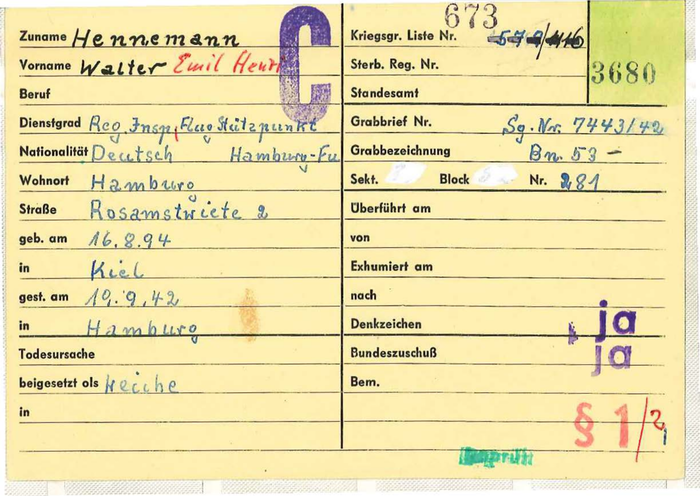 673
C
Zuname Hennemann
Vorname Walter Emil Henri
Beruf
Dienstgrad Reg. Insp. Flug Stützpunkt
Nationalität Deutsch Hamburg-Fu
Wohnort Hamburg
Straße Rosamstwiete 2
geb. am 16.8.94
in Kiel
gest. am 19.9.42
in Hamburg
Todesursache
beigesetzt als Leiche
in
Kriegsgr. Liste Nr. /416
Sterb. Reg. Nr.
3680
Standesamt
Grabbrief Nr. Sg. Nr. 7443/42
Grabbezeichnung Bn. 53 -
Sekt. Block Nr. 281
Überführt am
von
Exhumiert am
nach
Denkzeichen ja
Bundeszuschuß ja
Bem.
§ 1/2,